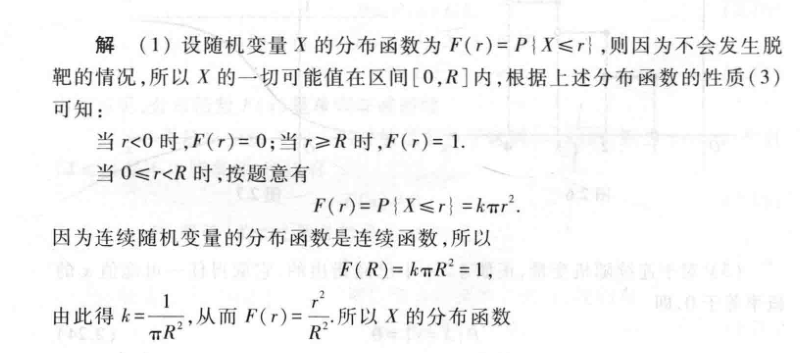 解 (1) 设随机变量 X 的分布函数为 F(r)=P{X≤r},则因为不会发生脱
靶的情况,所以 X 的一切可能值在区间[0,R]内,根据上述分布函数的性质(3)
可知:
当 r<0 时,F(r)=0;当 r≥R 时,F(r)=1.
当 0≤r<R 时,按题意有
F(r)=P{X≤r}=kπr².
因为连续随机变量的分布函数是连续函数,所以
F(R)=kπR²=1,
由此得 k=1/πR²,从而 F(r)=r²/R².所以 X 的分布函数